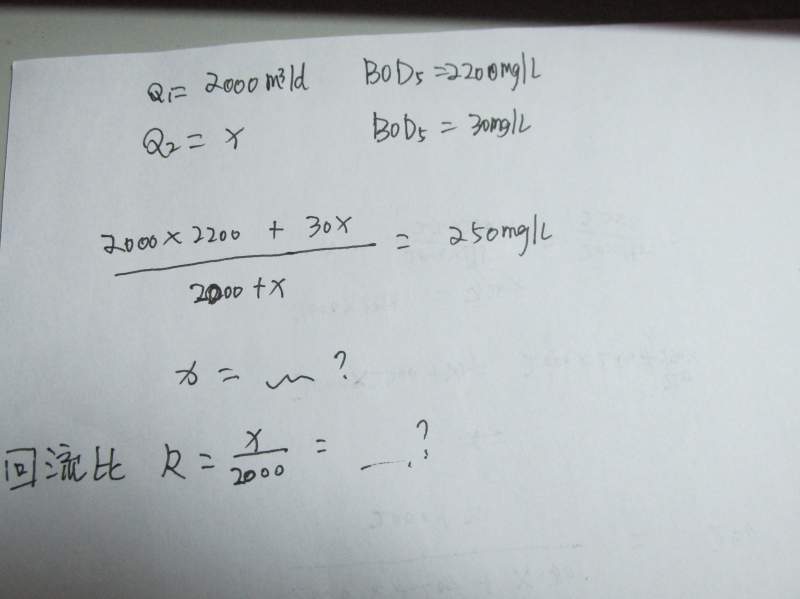 Q₁= 2000 m³/d BOD₅ =2200mg/L
Q₂ = x BOD₅ = 30mg/L
2000 × 2200 + 30x = 250mg/L
2000 + x
x = ?
回流比 R = x/2000 = ?